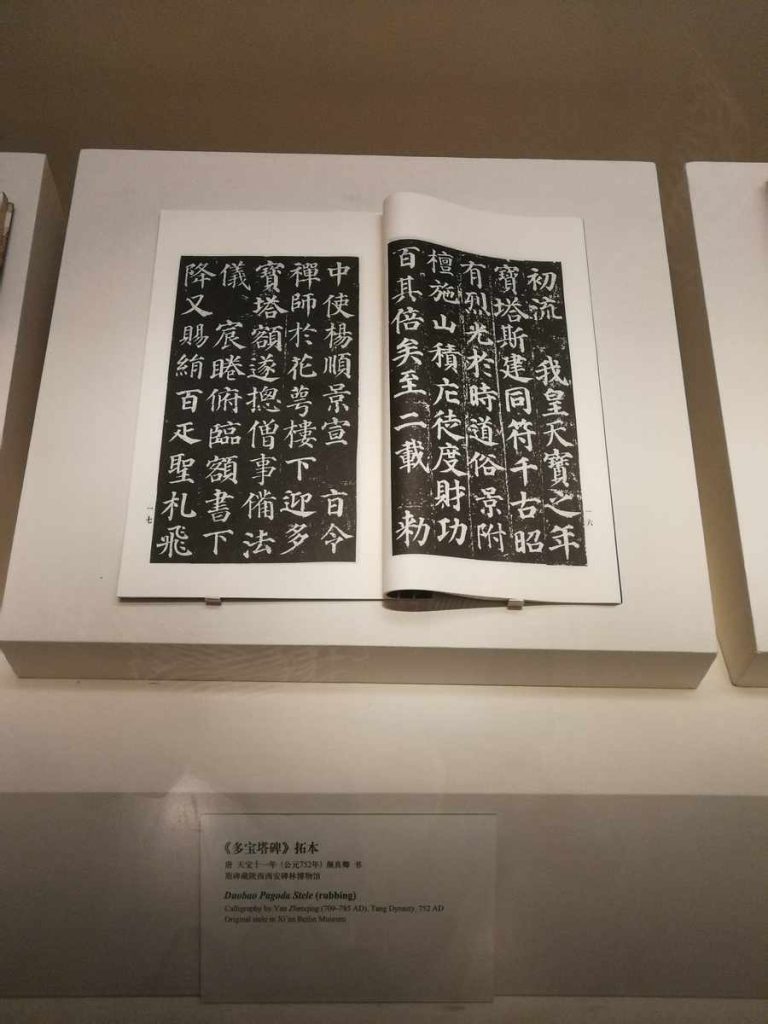 初流 我皇天寶之年
寶塔斯建同符千古昭
有烈光於時道俗景附
檀施山積庀徒度財功
百其倍矣至二載 勑
一六
中使楊順景宣 旨令
禪師於花萼樓下迎多
寶塔額遂摠僧事備法
儀 宸睠俯臨額書下
降又賜絹百疋聖札飛
一七
《多宝塔碑》拓本
唐 天宝十一年（公元752年）颜真卿 书
原碑藏陕西西安碑林博物馆
Duobao Pagoda Stele (rubbing)
Calligraphy by Yan Zhenqing (709-785 AD), Tang Dynasty, 752 AD
Original stele in Xi'an Beilin Museum